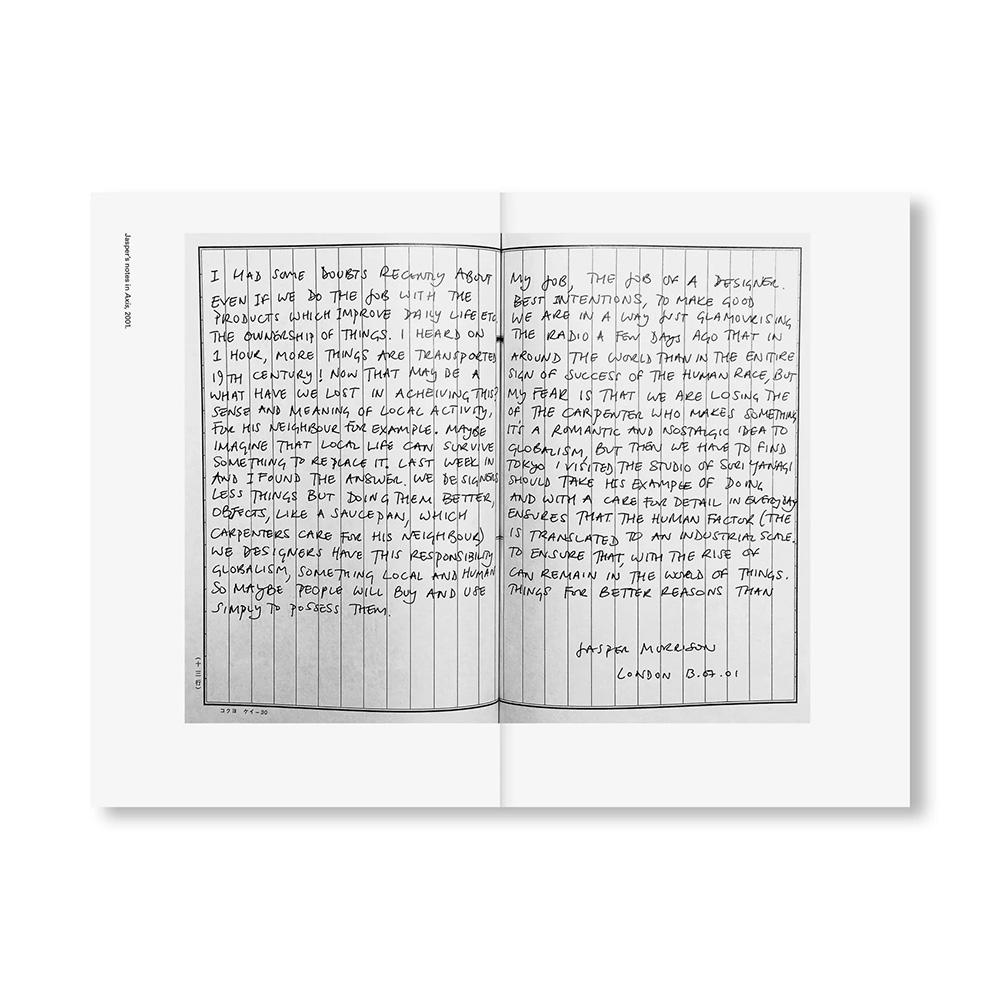 Jasper's notes in Axis, 2001.
I HAD SOME DOUBTS RECENTLY ABOUT MY JOB, THE JOB OF A DESIGNER.
EVEN IF WE DO THE JOB WITH THE BEST INTENTIONS, TO MAKE GOOD
PRODUCTS WHICH IMPROVE DAILY LIFE ETC WE ARE IN A WAY JUST GLAMOURISING
THE OWNERSHIP OF THINGS. I HEARD ON THE RADIO A FEW DAYS AGO THAT IN
1 HOUR, MORE THINGS ARE TRANSPORTED AROUND THE WORLD THAN IN THE ENTIRE
19TH CENTURY! NOW THAT MAY BE A SIGN OF SUCCESS OF THE HUMAN RACE, BUT
WHAT HAVE WE LOST IN ACHEIVING THIS? MY FEAR IS THAT WE ARE LOSING THE
SENSE AND MEANING OF LOCAL ACTIVITY, OF THE CARPENTER WHO MAKES SOMETHING
FOR HIS NEIGHBOUR FOR EXAMPLE. MAYBE IT'S A ROMANTIC AND NOSTALGIC IDEA TO
IMAGINE THAT LOCAL LIFE CAN SURVIVE GLOBALISM, BUT THEN WE HAVE TO FIND
SOMETHING TO REPLACE IT. LAST WEEK IN TOKYO I VISITED THE STUDIO OF SORI YANAGI
AND I FOUND THE ANSWER. WE DESIGNERS SHOULD TAKE HIS EXAMPLE OF DOING
LESS THINGS BUT DOING THEM BETTER, AND WITH A CARE FOR DETAIL IN EVERYDAY
OBJECTS, LIKE A SAUCEPAN, WHICH ENSURES THAT THE HUMAN FACTOR (THE
CARPENTERS CARE FOR HIS NEIGHBOUR) IS TRANSLATED TO AN INDUSTRIAL SCALE.
WE DESIGNERS HAVE THIS RESPONSIBILITY TO ENSURE THAT, WITH THE RISE OF
GLOBALISM, SOMETHING LOCAL AND HUMAN CAN REMAIN IN THE WORLD OF THINGS.
SO MAYBE PEOPLE WILL BUY AND USE THINGS FOR BETTER REASONS THAN
SIMPLY TO POSSESS THEM.
JASPER MORRISON
LONDON 13.07.01
(十三行)
コクヨ ケイ-30